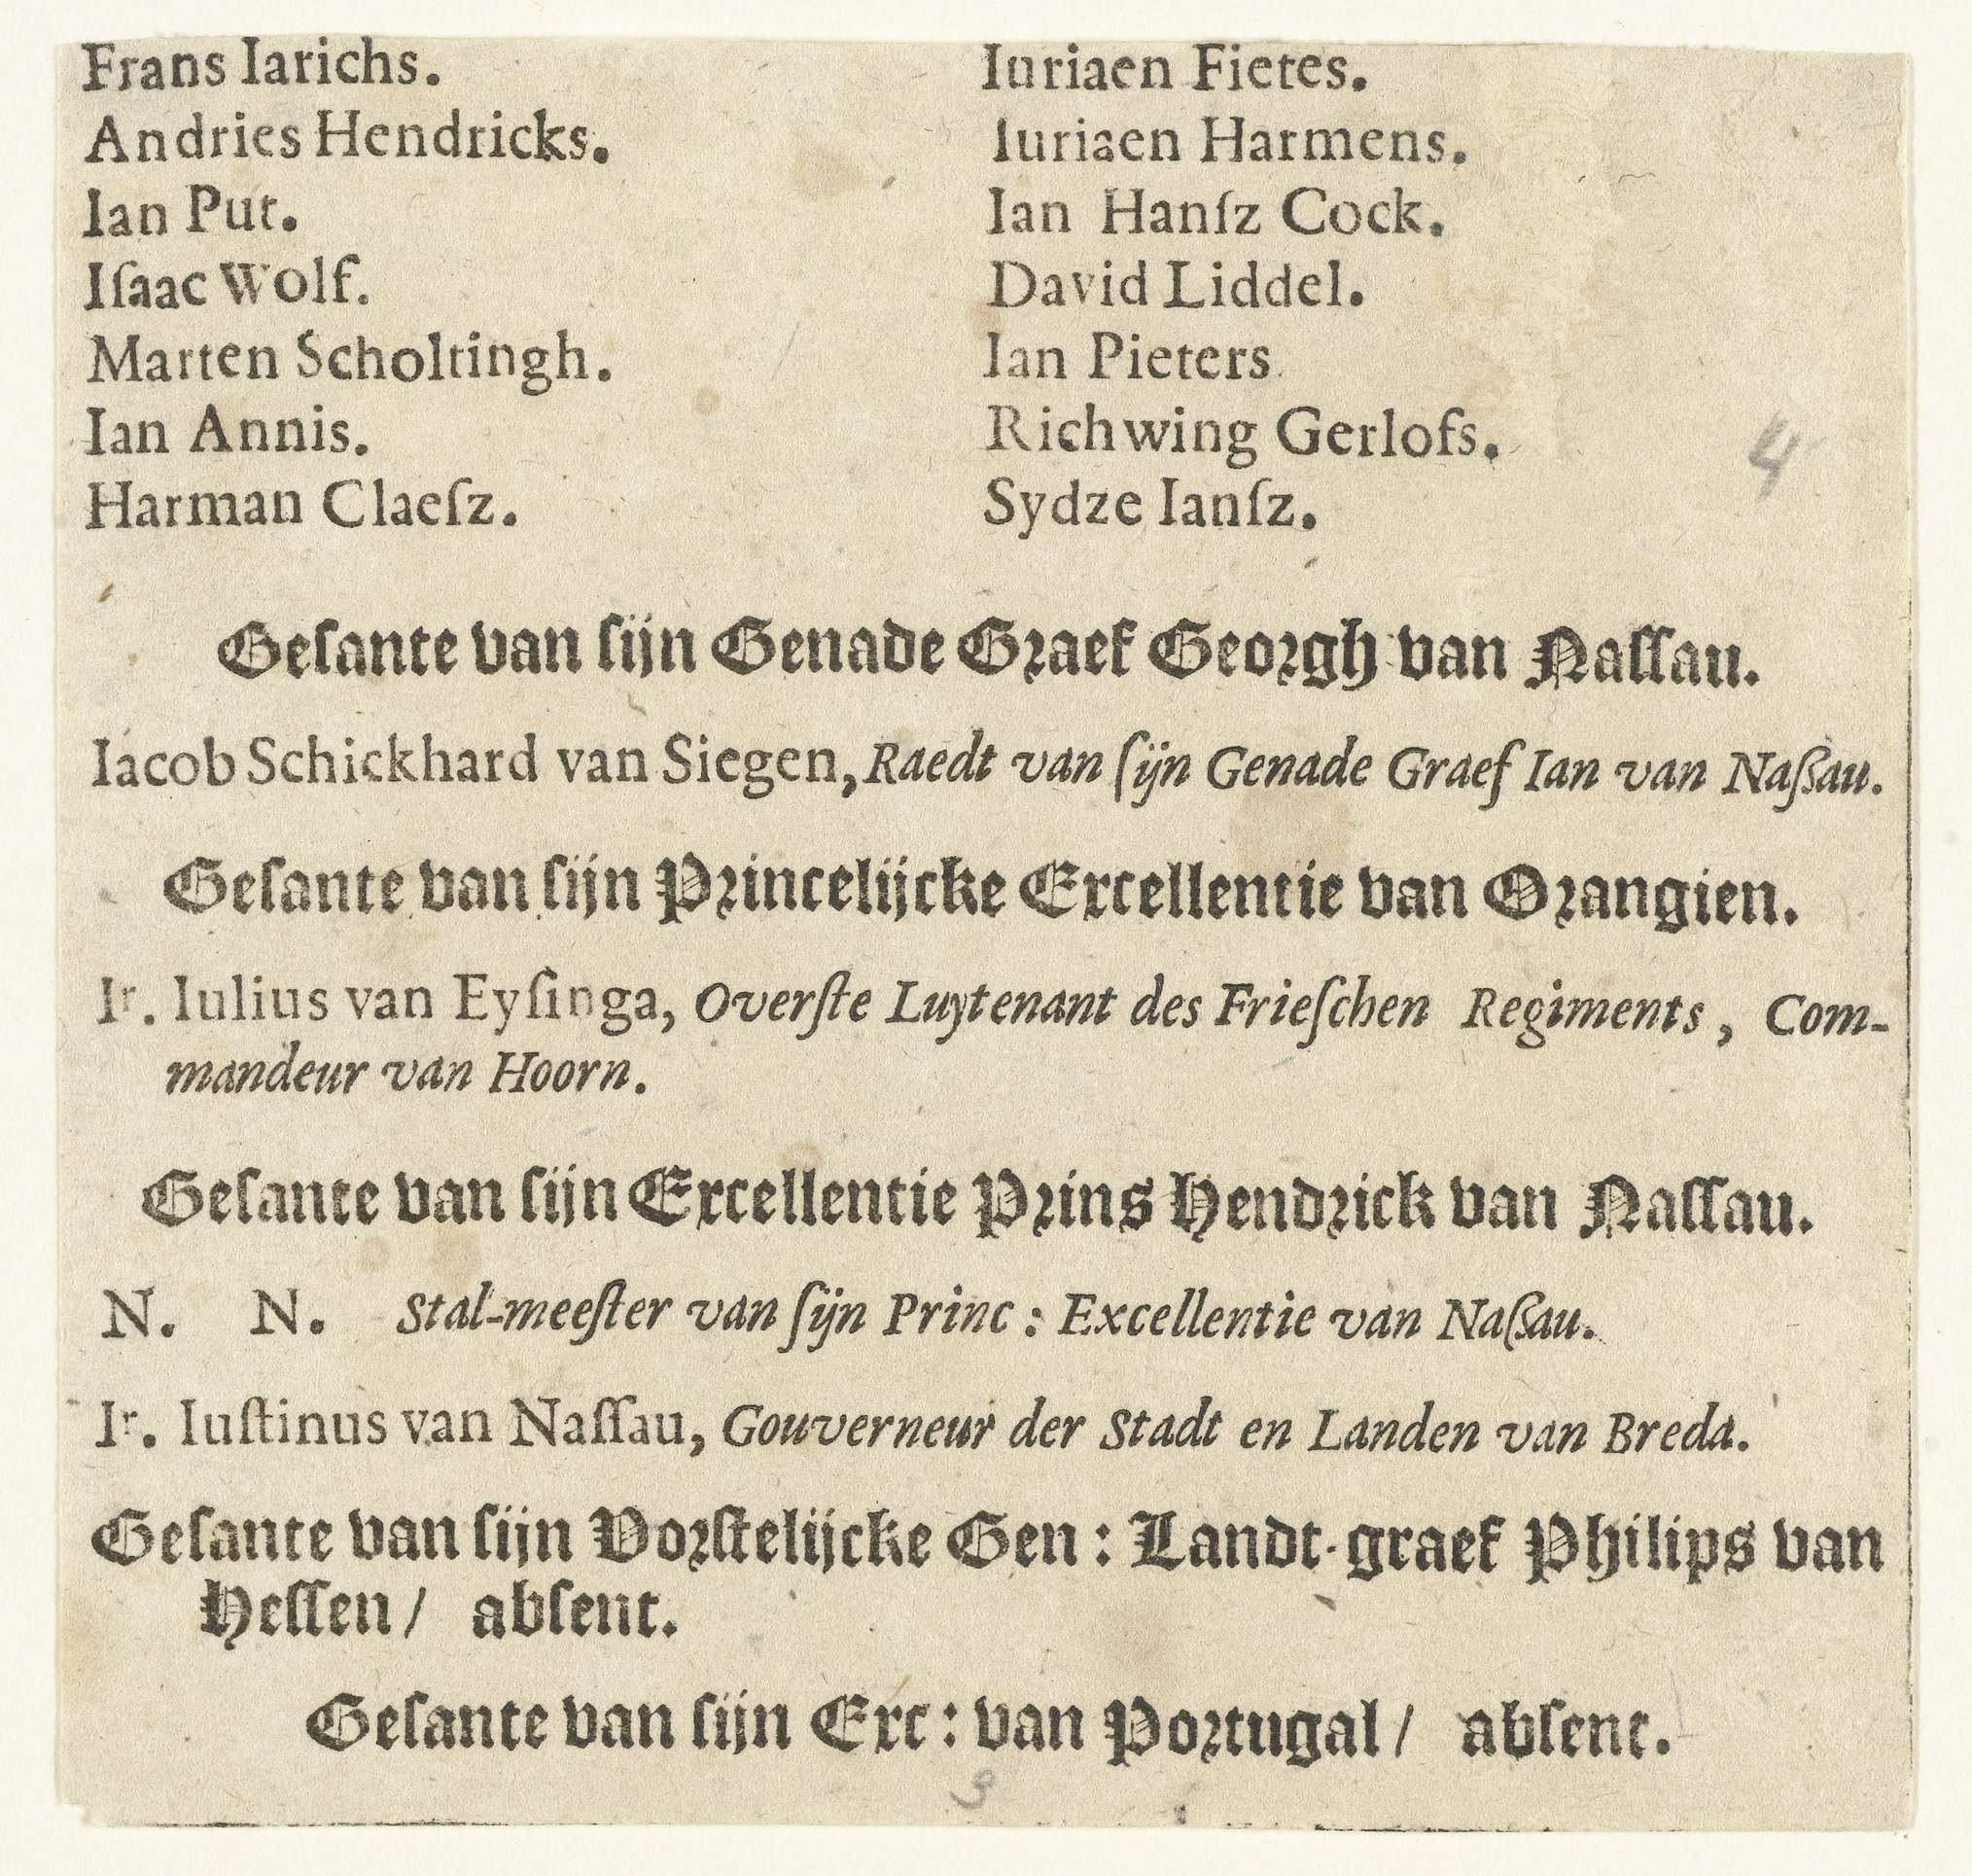 Frans Iarichs.
Andries Hendricks.
Ian Put.
Iſaac Wolf.
Marten Scholtingh.
Ian Annis.
Harman Claeſz.
Iuriaen Fietes.
Iuriaen Harmens.
Ian Hanſz Cock.
David Liddel.
Ian Pieters.
Richwing Gerlofs.
Sydze Ianſz.
4
Geſante van ſijn Genade Graef Georgh van Naſſau.
Iacob Schickhard van Siegen, Raedt van ſijn Genade Graef Ian van Naßau.
Geſante van ſijn Princelijcke Excellentie van Orangien.
Ir. Iulius van Eyſinga, Overſte Luytenant des Frieſchen Regiments, Com-
mandeur van Hoorn.
Geſante van ſijn Excellentie Prins Hendrick van Naſſau.
N. N. Stal-meeſter van ſijn Princ: Excellentie van Naßau.
Ir. Iuſtinus van Naſſau, Gouverneur der Stadt en Landen van Breda.
Geſante van ſijn Vorſtelijcke Gen: Landt-graef Philips van
Heſſen/ abſent.
Geſante van ſijn Exc: van Portugal/ abſent.
3